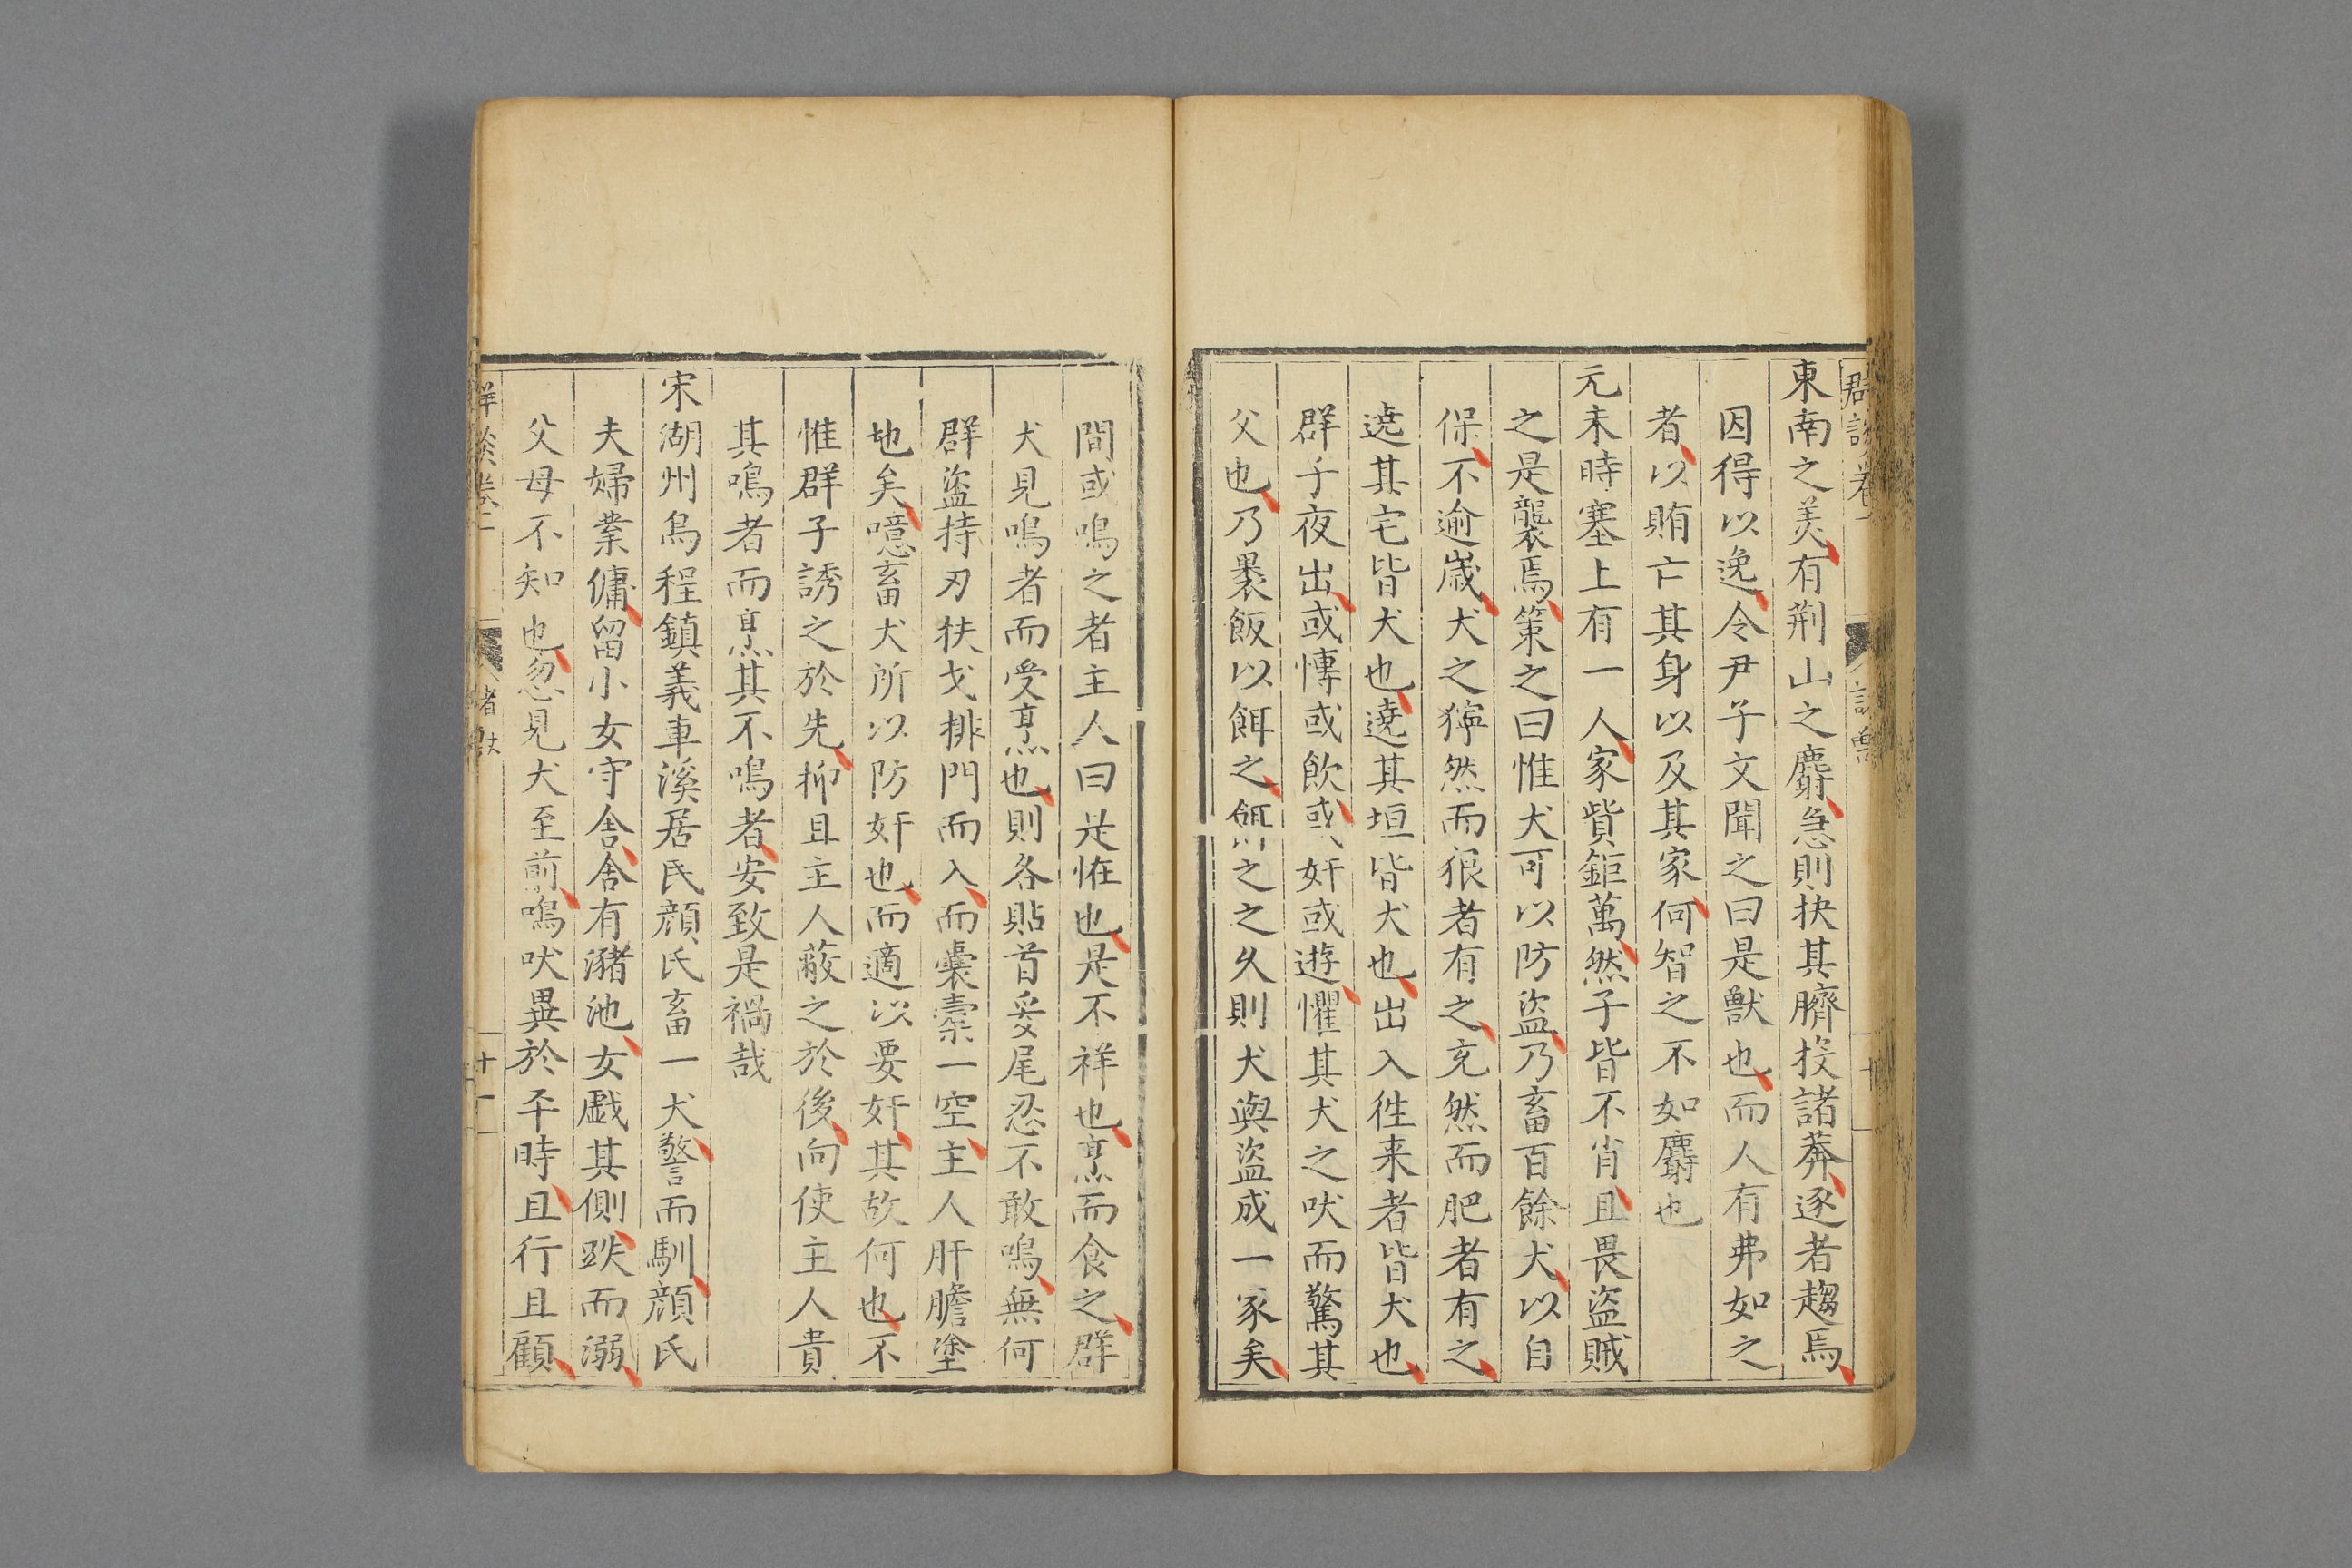 東南之美有荆山之麝急則抉其臍投諸莽逐者趨焉
因得以逸令尹子文聞之曰是獸也而人有弗如之
者以賄亡其身以及其家何智之不如麝也
元末時塞上有一人家貲鉅萬然子皆不肖且畏盜賊
之是襲焉策之曰惟犬可以防盜乃畜百餘犬以自
保不逾歲犬之獰然而狠者有之充然而肥者有之
遶其宅皆犬也遶其垣皆犬也出入徃来者皆犬也
群子夜出或慱或飲或奸或遊懼其犬之吠而驚其
父也乃褁飯以餌之餌之之久則犬與盜成一家矣
間或鳴之者主人曰是恠也是不祥也烹而食之群
犬見鳴者而受烹也則各貼首妥尾忍不敢鳴無何
群盜持刃扶戈排門而入而囊橐一空主人肝膽塗
地矣噫畜犬所以防奸也而適以要奸其故何也不
惟群子誘之於先抑且主人蔽之於後向使主人貴
其鳴者而烹其不鳴者安致是禍哉
宋湖州烏程鎮義車溪居民顔氏畜一犬警而馴顔氏
夫婦業傭留小女守舍舍有瀦池女戲其側跌而溺
父母不知也忽見犬至前鳴吠異於平時且行且顧
十一